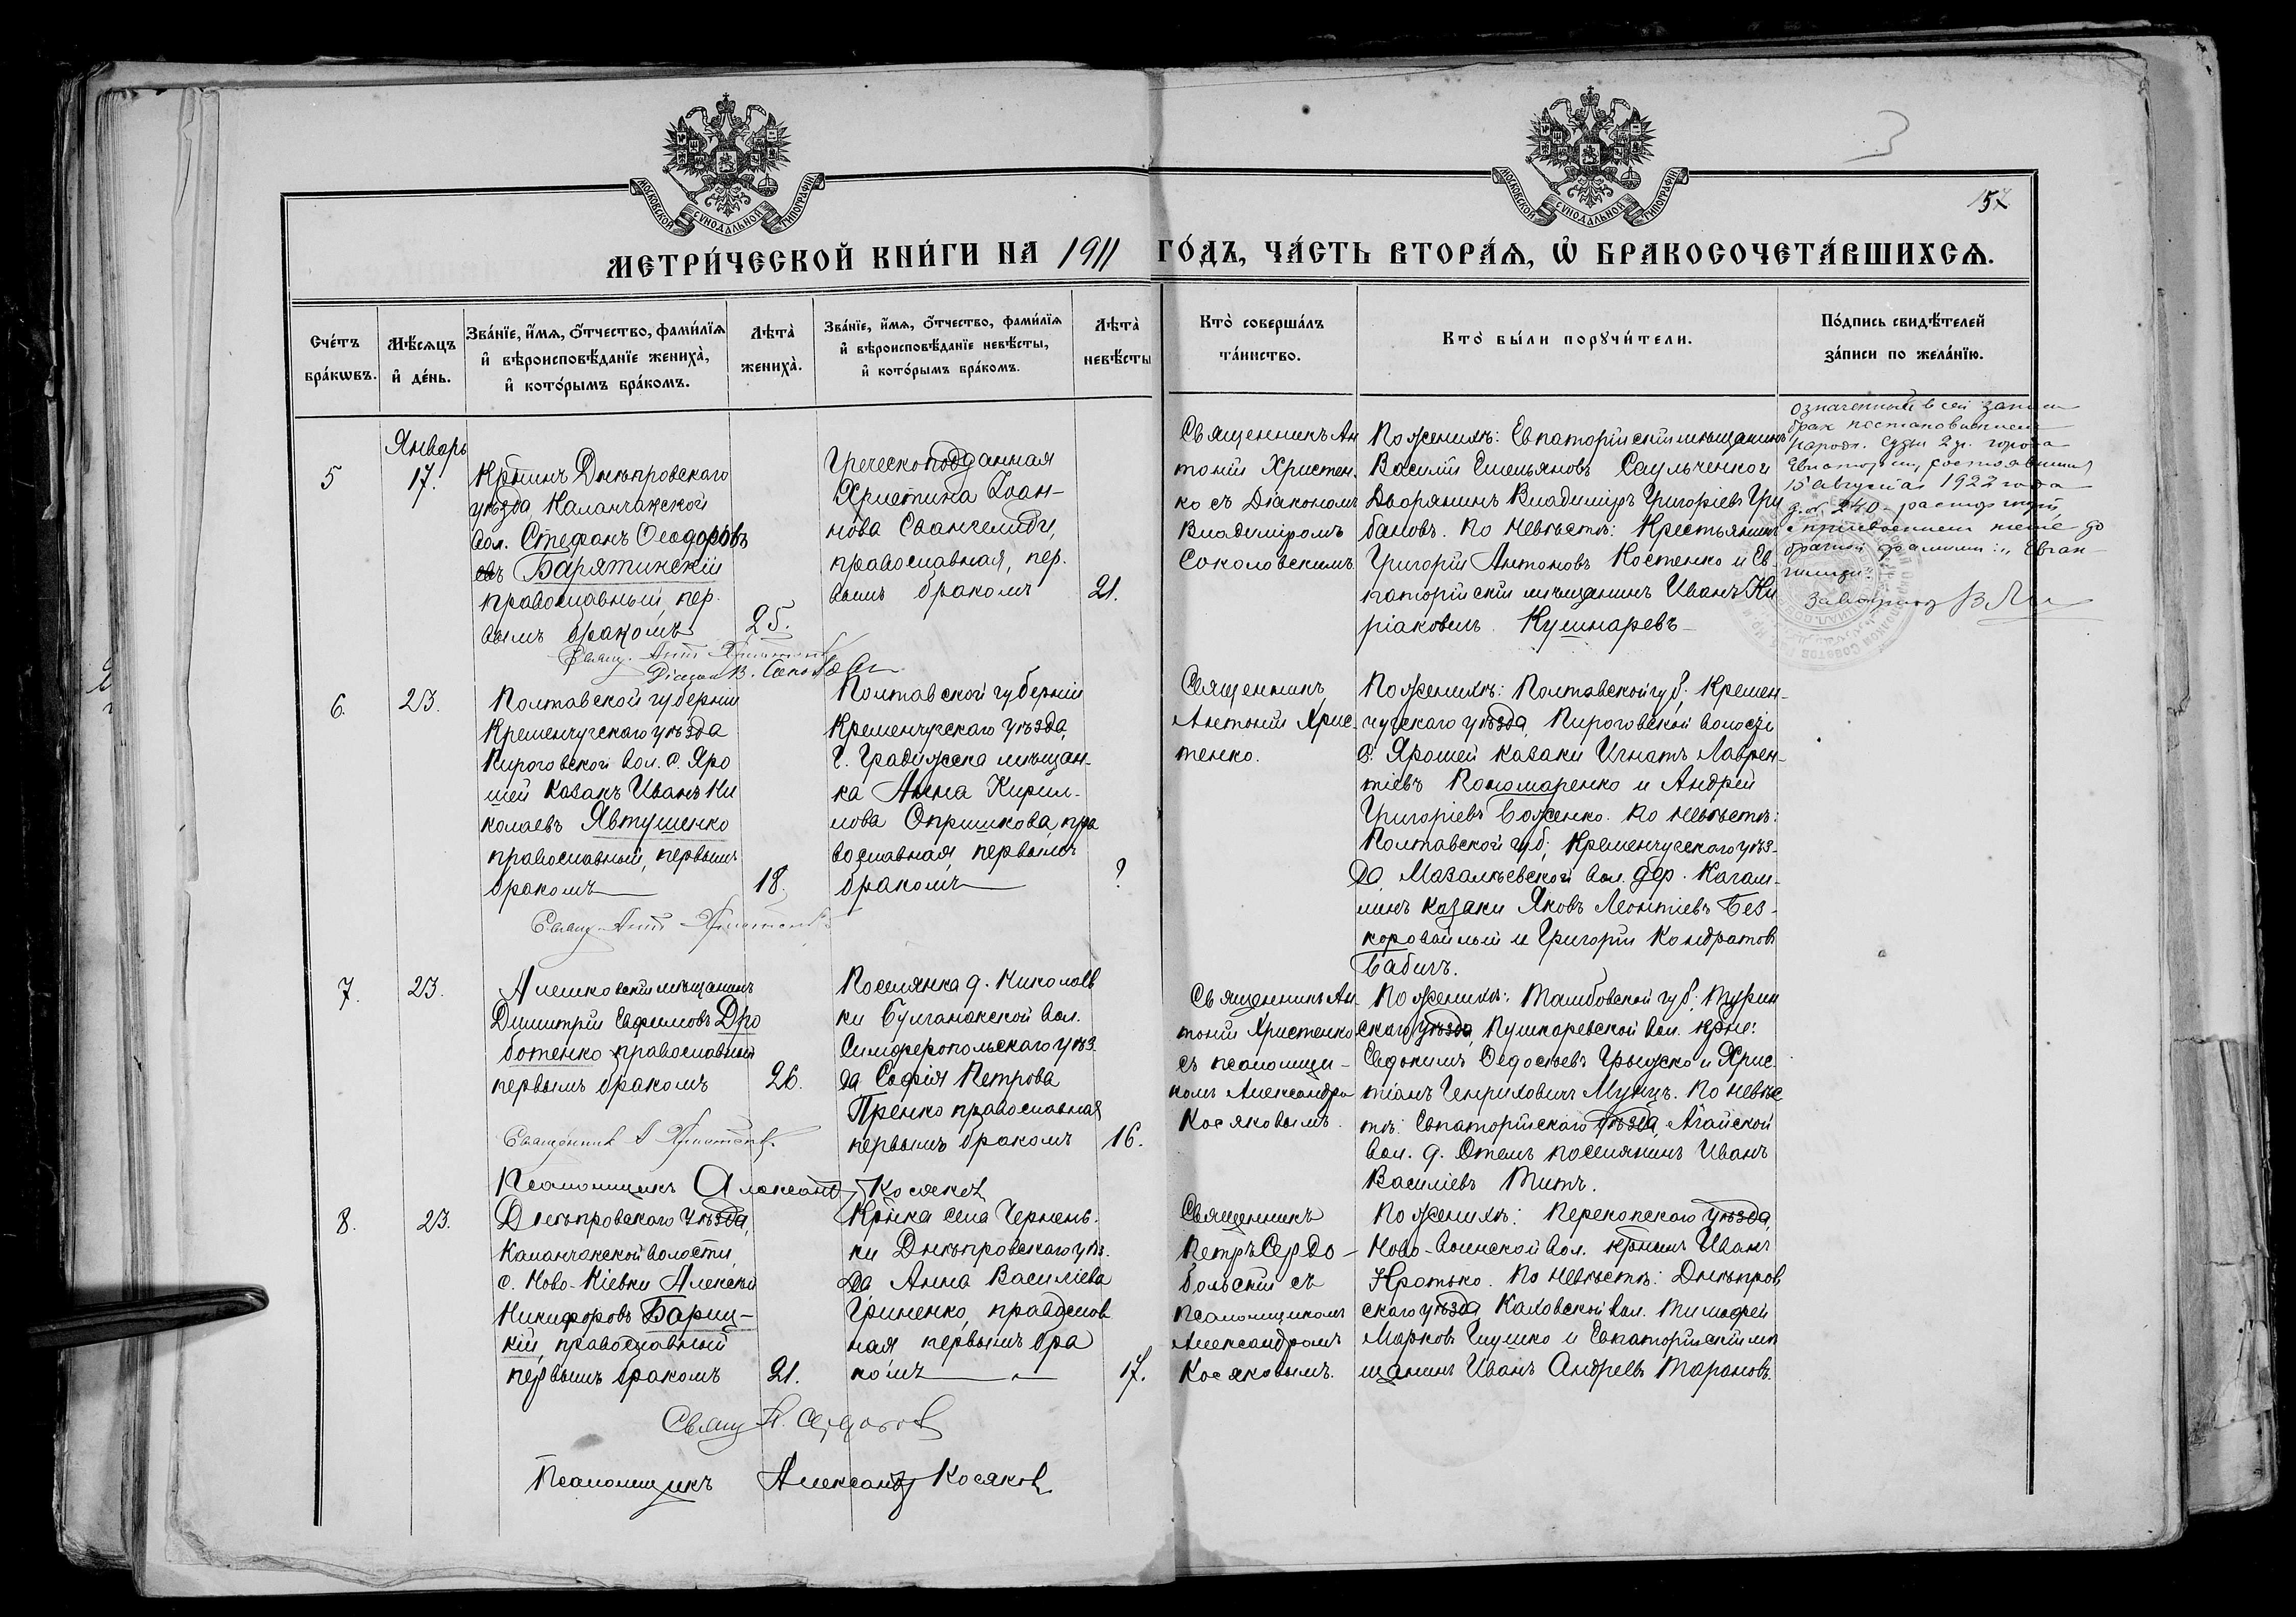 МОСКОВСКОЙ СУНОДАЛЬНОЙ ТИПОГРАФІИ
МОСКОВСКОЙ СУНОДАЛЬНОЙ ТИПОГРАФІИ
3
157
МЕТРИ́ЧЕСКОЙ КНИ́ГИ НА 1911 ГО́ДЪ, ЧА́СТЬ ВТОРА́Ѧ, Ѽ БРАКОСОЧЕТА́ВШИХСѦ.
Сче́тъ бра́кѡвъ.
Мѣ́сѧцъ и҆ де́нь.
Зва́нїе, и҆́мѧ, ѻ҆́тчество, фами́лїѧ и҆ вѣроисповѣ́данїе жениха̀, и҆ кото́рымъ бра́комъ.
Лѣ́та̀ жениха̀.
Зва́нїе, и҆́мѧ, ѻ҆́тчество, фами́лїѧ и҆ вѣроисповѣ́данїе невѣ́сты, и҆ кото́рымъ бра́комъ.
Лѣ́та̀ невѣ́сты
Кто̀ соверша́лъ та́инство.
Кто̀ бы́ли порꙋчи́тели.
По́дпись свидѣ́телей за́писи по жела́нїю.
5
Январь
17.
Кр̃нинъ Днѣпровскаго
уѣзда, Каланчакской
вол. Стефанъ Ѳеодоровъ
Барятинскій
православный, пер-
вымъ бракомъ
25.
Греческоподданная
Христина Іоан-
нова Евангелиди,
православная, пер-
вымъ бракомъ
21.
Священникъ Ан
тоній Христен-
ко съ Діакономъ
Владиміромъ
Соколовскимъ.
По женихѣ: Евпаторійскій мѣщанинъ
Василій Емельяновъ Саульченко и
Дворянинъ Владиміръ Григорьевъ Гри
бановъ. По невѣстѣ: Крестьянинъ
Григорій Антоновъ Костенко и Ев-
паторійскій мѣщанинъ Иванъ Ки
ріаковъ Кушнаревъ
Означенный в сей записи
брак постановлением
народн. судьи 2 у. города
Евпатории, состоявшимся
15 августа 1922 года
д. № 240 - расторгнут,
с присвоением жене до
брачной фамилии: „Еванг-
Свящ. Ант. Христенко
Діаконъ В.
6.
23.
Полтавской губерніи
Кременчугскаго уѣзда
Пироговской вол. с. Яро
шей казакъ Иванъ Ни
колаевъ Явтушенко
православный, первымъ
бракомъ
18.
Полтавской губерніи
Кременчугскаго уѣзда,
г. Градижска мѣщан-
ка Анна Кирил-
лова Опришкова, пра
вославная, первымъ
бракомъ
?
Священникъ
Антоній Хрис-
тенко.
По женихѣ: Полтавской губ. Кремен-
чугскаго уѣзда, Пироговской волости
с. Ярошей казаки Игнатъ Лаврен-
тіевъ Пономаренко и Андрей
Григоріевъ Боженко. По невѣстѣ:
Полтавской губ., Кременчугскаго уѣз-
да, Мазалѣевской вол. дер. Кагам-
никъ казаки Яковъ Леонтіевъ Без-
коровайный и Григорій Кондратовъ
Бабичъ.
Свящ. Ант. Христенко
7.
23.
Алешковскій мѣщанинъ
Димитрій Евфимовъ Дро
ботенко православный
первымъ бракомъ
26.
Поселянка д. Николаев
ки Булганакской вол.
Симферопольскаго уѣз-
да Софія Петрова
Пренко православная
первымъ бракомъ
16.
Священникъ Ан-
тоній Христенко
съ псаломщи-
комъ Александро
Косяковымъ.
По женихѣ: Тамбовской губ.
скаго уѣзда, Пушкаревской вол. кр̃не:
Евдокимъ Ѳедосѣевъ и Хрис-
тіанъ Генриховичъ Мунцъ. По невѣс
тѣ: Евпаторійскаго уѣзда, Агайской
вол. д. Отешъ поселянинъ Иванъ
Василіевъ Титъ.
Священникъ А Христенко
Псаломщикъ Александр Косяков
8.
23.
Днѣпровскаго уѣзда,
Каланчакской волости,
с. Ново-Кіевки Алексѣй
Никифоровъ Бариц-
кій, православный
первымъ бракомъ
21.
Кр̃нка села Чернень-
ки Днѣпровскаго уѣз-
да Анна Василіева
Гриненко, православ
ная первымъ бра
комъ
17.
Священникъ
Петръ Сердо-
больскій съ
псаломщикомъ
Александромъ
Косяковымъ.
По женихѣ: Перекопскаго уѣзда,
Ново-воинской вол. кр̃нинъ Иванъ
Кротько. По невѣстѣ: Днѣпров
скаго уѣзда Каховской вол. Тимофей
Марковъ Глушко и Евпаторійскій мѣ
щанинъ Иванъ Андреевъ Тарановъ.
Свящ. П. Сердобол
Псаломщикъ Александр Косяков